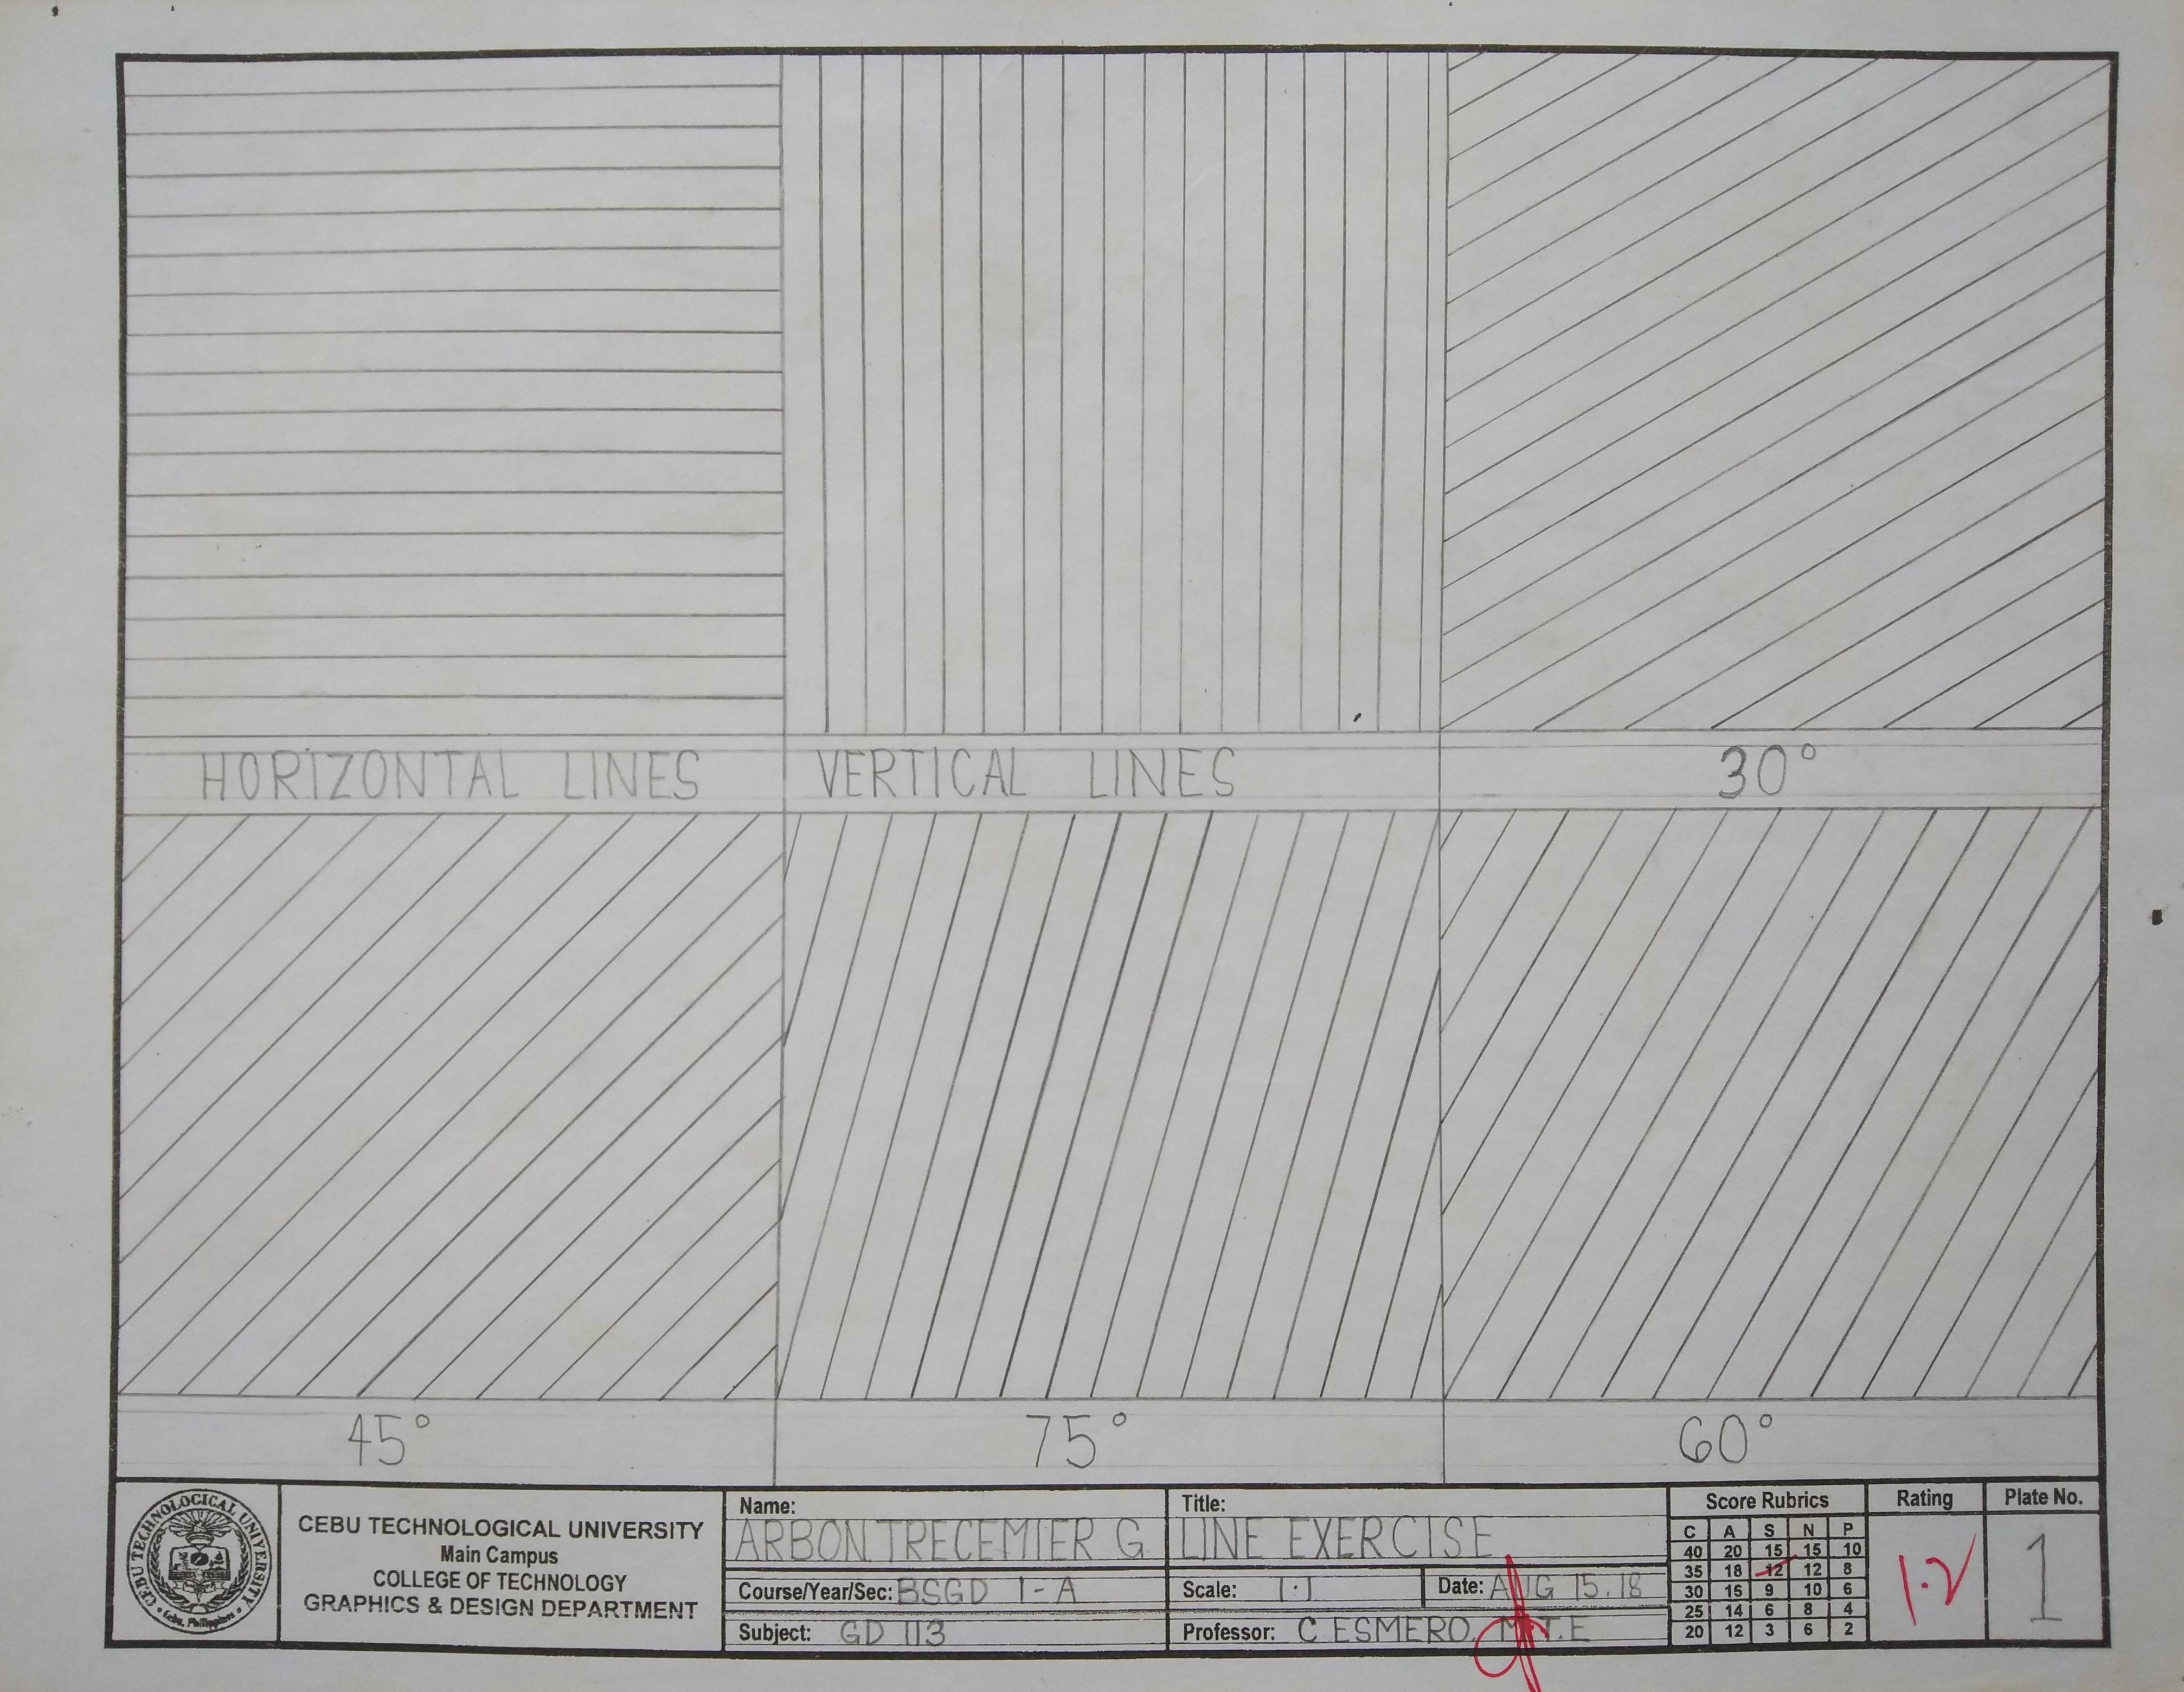 HORIZONTAL LINES
VERTICAL LINES
30°
45°
75°
60°
CEBU TECHNOLOGICAL UNIVERSITY
Cebu, Philippines
CEBU TECHNOLOGICAL UNIVERSITY
Main Campus
COLLEGE OF TECHNOLOGY
GRAPHICS & DESIGN DEPARTMENT
Name:
ARBON, TRECEMIER G
Course/Year/Sec: BSGD 1-A
Subject: GD 113
Title:
LINE EXERCISE
Scale: 1:1
Date: AUG 15.18
Professor: C ESMERO, M.T.E
Score Rubrics
C A S N P
40 20 15 15 10
35 18 12 12 8
30 16 9 10 6
25 14 6 8 4
20 12 3 6 2
Rating
1.2
Plate No.
1